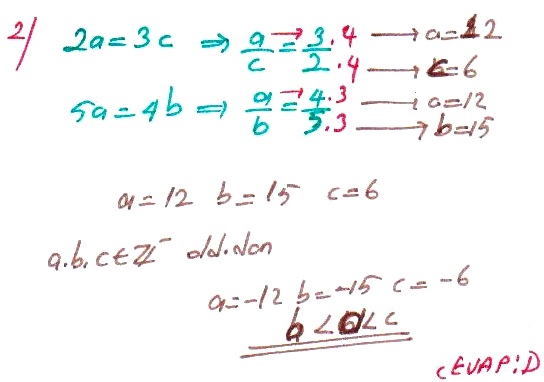 2/ 2a = 3c ⇒ a/c = 3.4/2.4 → a = 12
→ c = 6
5a = 4b ⇒ a/b = 4.3/5.3 → a = 12
→ b = 15
a = 12 b = 15 c = 6
a.b.c ∈ Z⁻ old.dan
a = -12 b = -15 c = -6
b < a < c
CEVAP: D